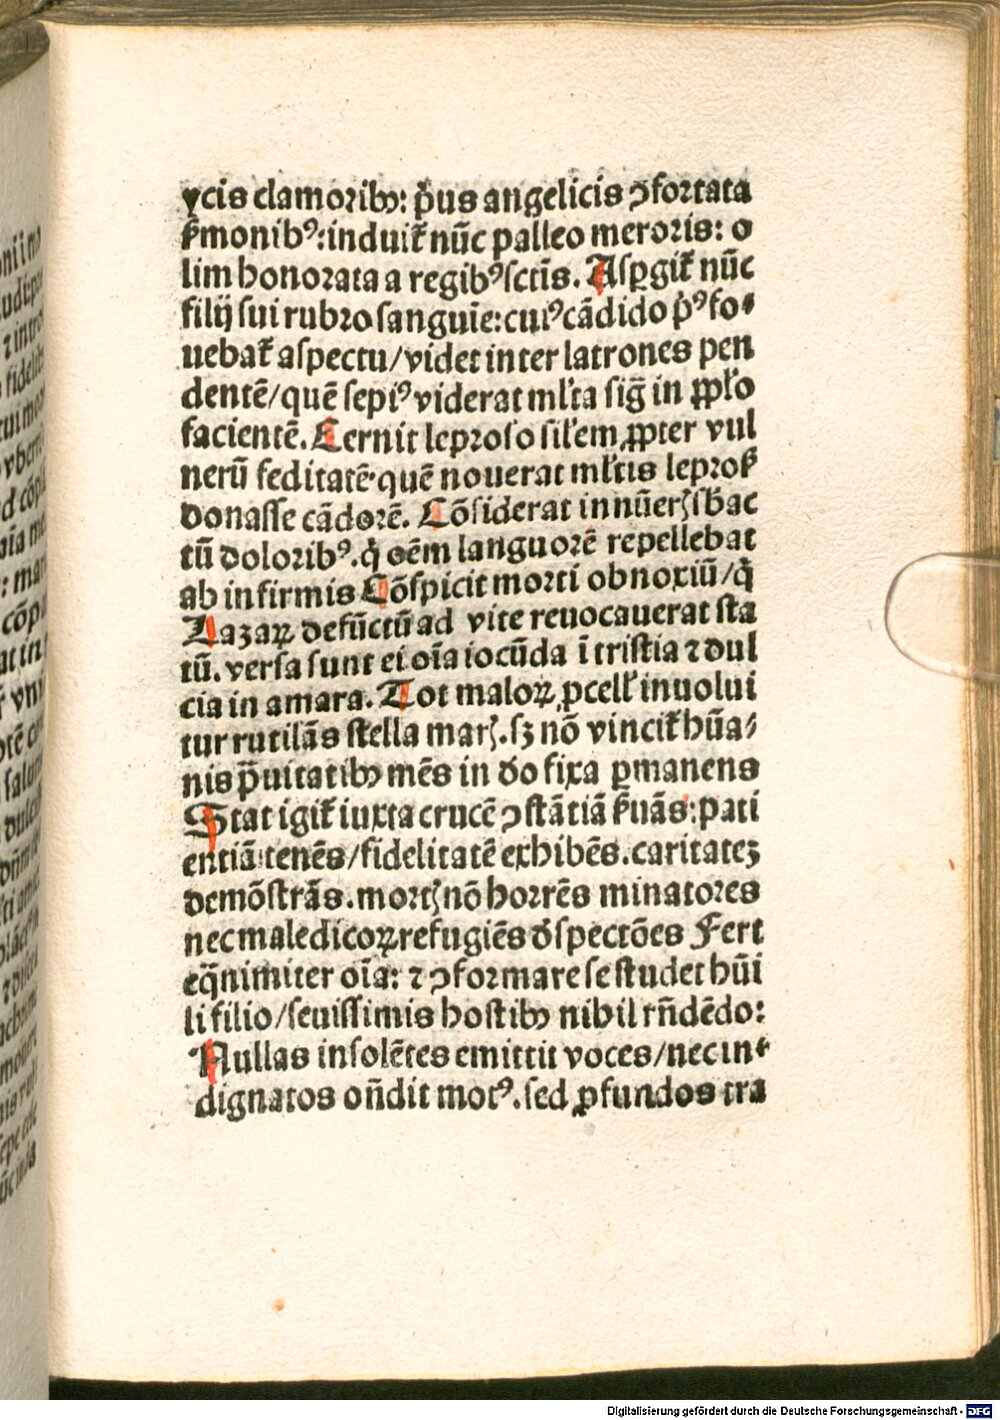 ycis clamoribꝫ: p̄us angelicis ꝯfortata
ẜmonibꝰ:induit᷑ nūc palleo meroris: o
lim honorata a regibꝰ sctīs. Aspgit᷑ nūc
filij sui rubro sanguīe: cuiꝰ cādido p̄ꝰ fo⸗
uebat᷑ aspectu/videt inter latrones pen
dentē/quē sepiꝰ viderat ml̓ta sig̅ in ꝓpl̓o
facientē. Cernit leproso sil̓em ꝓpter vul
nerū feditatē·quē nouerat ml̓tis leproẜ
donasse cādorē. Cōsiderat innūerꝭ sb̓ac
tū doloribꝰ.q̇ oēm languorē repellebat
ab infirmis Cōspicit morti obnoxiū/q̇
Lazaꝝ defūctū ad vite reuocauerat sta
tū. versa sunt ei oīa iocūda ī tristia ⁊ dul
cia in amara. Tot maloꝝ ꝓcell̓ inuolui
tur rutilās stella marꝭ.sꝫ nō vincit᷑ hūa⸗
nis p̄uitatibꝫ mēs in deo fixa ꝑmanens
Stat igit᷑ iuxta crucē ꝯstātiā ẜuās: pati
entiā tenēs/fidelitatē exhibēs.caritateꝫ
demōstrās.mortꝭ nō horrēs minatores
nec maledicoꝝ refugiēs dspectōes Fert
eq̄nimiter oīa: ⁊ ꝯformare se studet hūi
li filio/seuissimis hostibꝫ nihil rn̄dēdo:
Nullas insolētes emittit voces/nec in⸗
dignatos on̄dit motꝰ.sed ꝓfundos tra
Digitalisierung gefördert durch die Deutsche Forschungsgemeinschaft - DFG